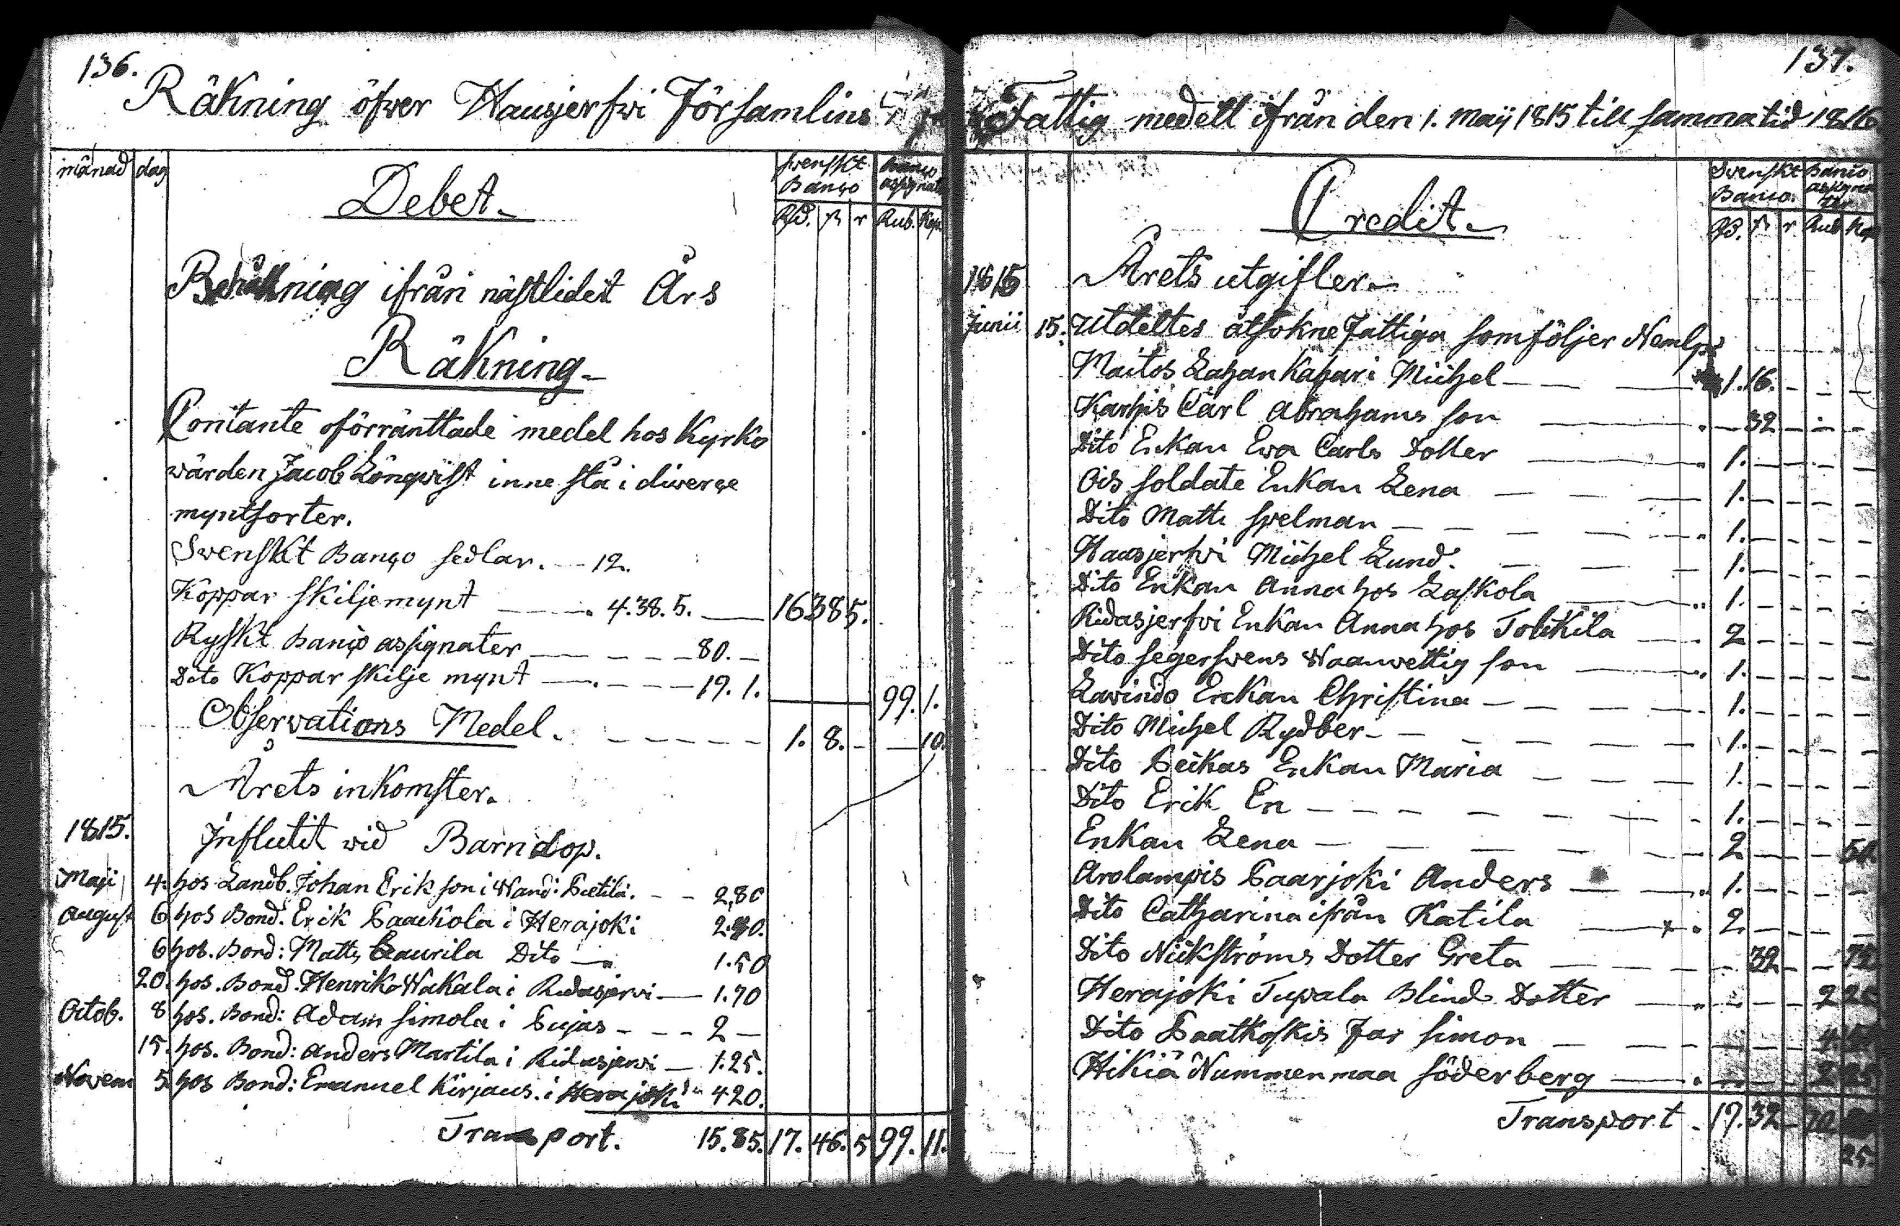 136.
Räkning öfver Hausjerfvi Församlins
månad dag
Debet.
Svenskt Banco
Banco assignat
Rd. ß r Rub. Kop.
Behållning ifrån nästlidet Års
Räkning
Contante oförränttade medel hos Kyrko
wärden Jacob Lönqwist inne stå i diverse
myntsorter.
Svenskt Banco sedlar. 12.
Koppar skiljemynt 4.38.5. 16 38 5.
Ryskt Banco assignater 80.
Dito Koppar skilje mynt 19. 1. 99. 1.
Observations Medel. 1. 8. 10.
Årets inkomster.
1815. Influtit wid Barndop.
Maji 4. hos Landb. Johan Erikson i Wand: Pietilä. 2,80
August 6 hos Bond: Erik Paavola i Herajoki
6 hos. Bond: Matts Laurila Dito 1.50
20. hos. Bond. Henrik Wakala i Ridasjervi 1.70
Octob. 8 hos. Bond: Adam Simola i Pujas 2
15. hos. Bond: Anders Martila i Ridasjervi 1.25.
Novem 5 hos Bond: Emanuel Kirjaus. i Herajoki 4 20.
Transport. 15.85. 17. 46. 5 99. 11.
137.
Fattig medell ifrån den 1. Maij 1815 till samma tid 1816
Credit.
Svenskt Banco.
Banco assigna ter
Rd. ß r Rub Kop
1815 Årets utgifter.
Junii 15. Utdeltes åt sokne Fattiga som följer Nemlg:
Maitos Lahan Kapari Michel 1. 16.
Karhis Carl Abrahams son 32
Dito Enkan Ewa Carls Dotter 1.
Ois soldate Enkan Lena 1.
Dito Matti Spelman 1.
Hausjerfvi Michel Lund. 1.
Dito Enkan Anna hos Laskola 1.
Ridasjerfvi Enkan Anna hos Tolkkila 2
Dito Segersvens Waanwettig son 1.
Lavindo Enkan Christina 1.
Dito Michel Rydber 1.
Dito Peikas Enkan Maria 1.
Dito Erik En 1.
Enkan Lena 2
Arolampis Paarjoki Anders 1.
Dito Catharina ifrån Katila 2
Dito Nickströms Dotter Greta 32
Herajoki Tupala Blind Dotter 2 25
Dito Paatkoskis Far Simon
Hikiä Nummenmaa Söderberg 2 25
Transport. 17. 32
25.